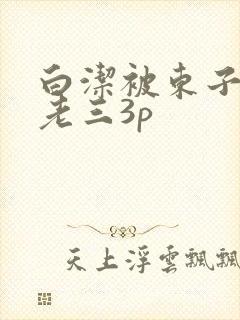 白潔被東子
老三3p
天上浮雲飄飄